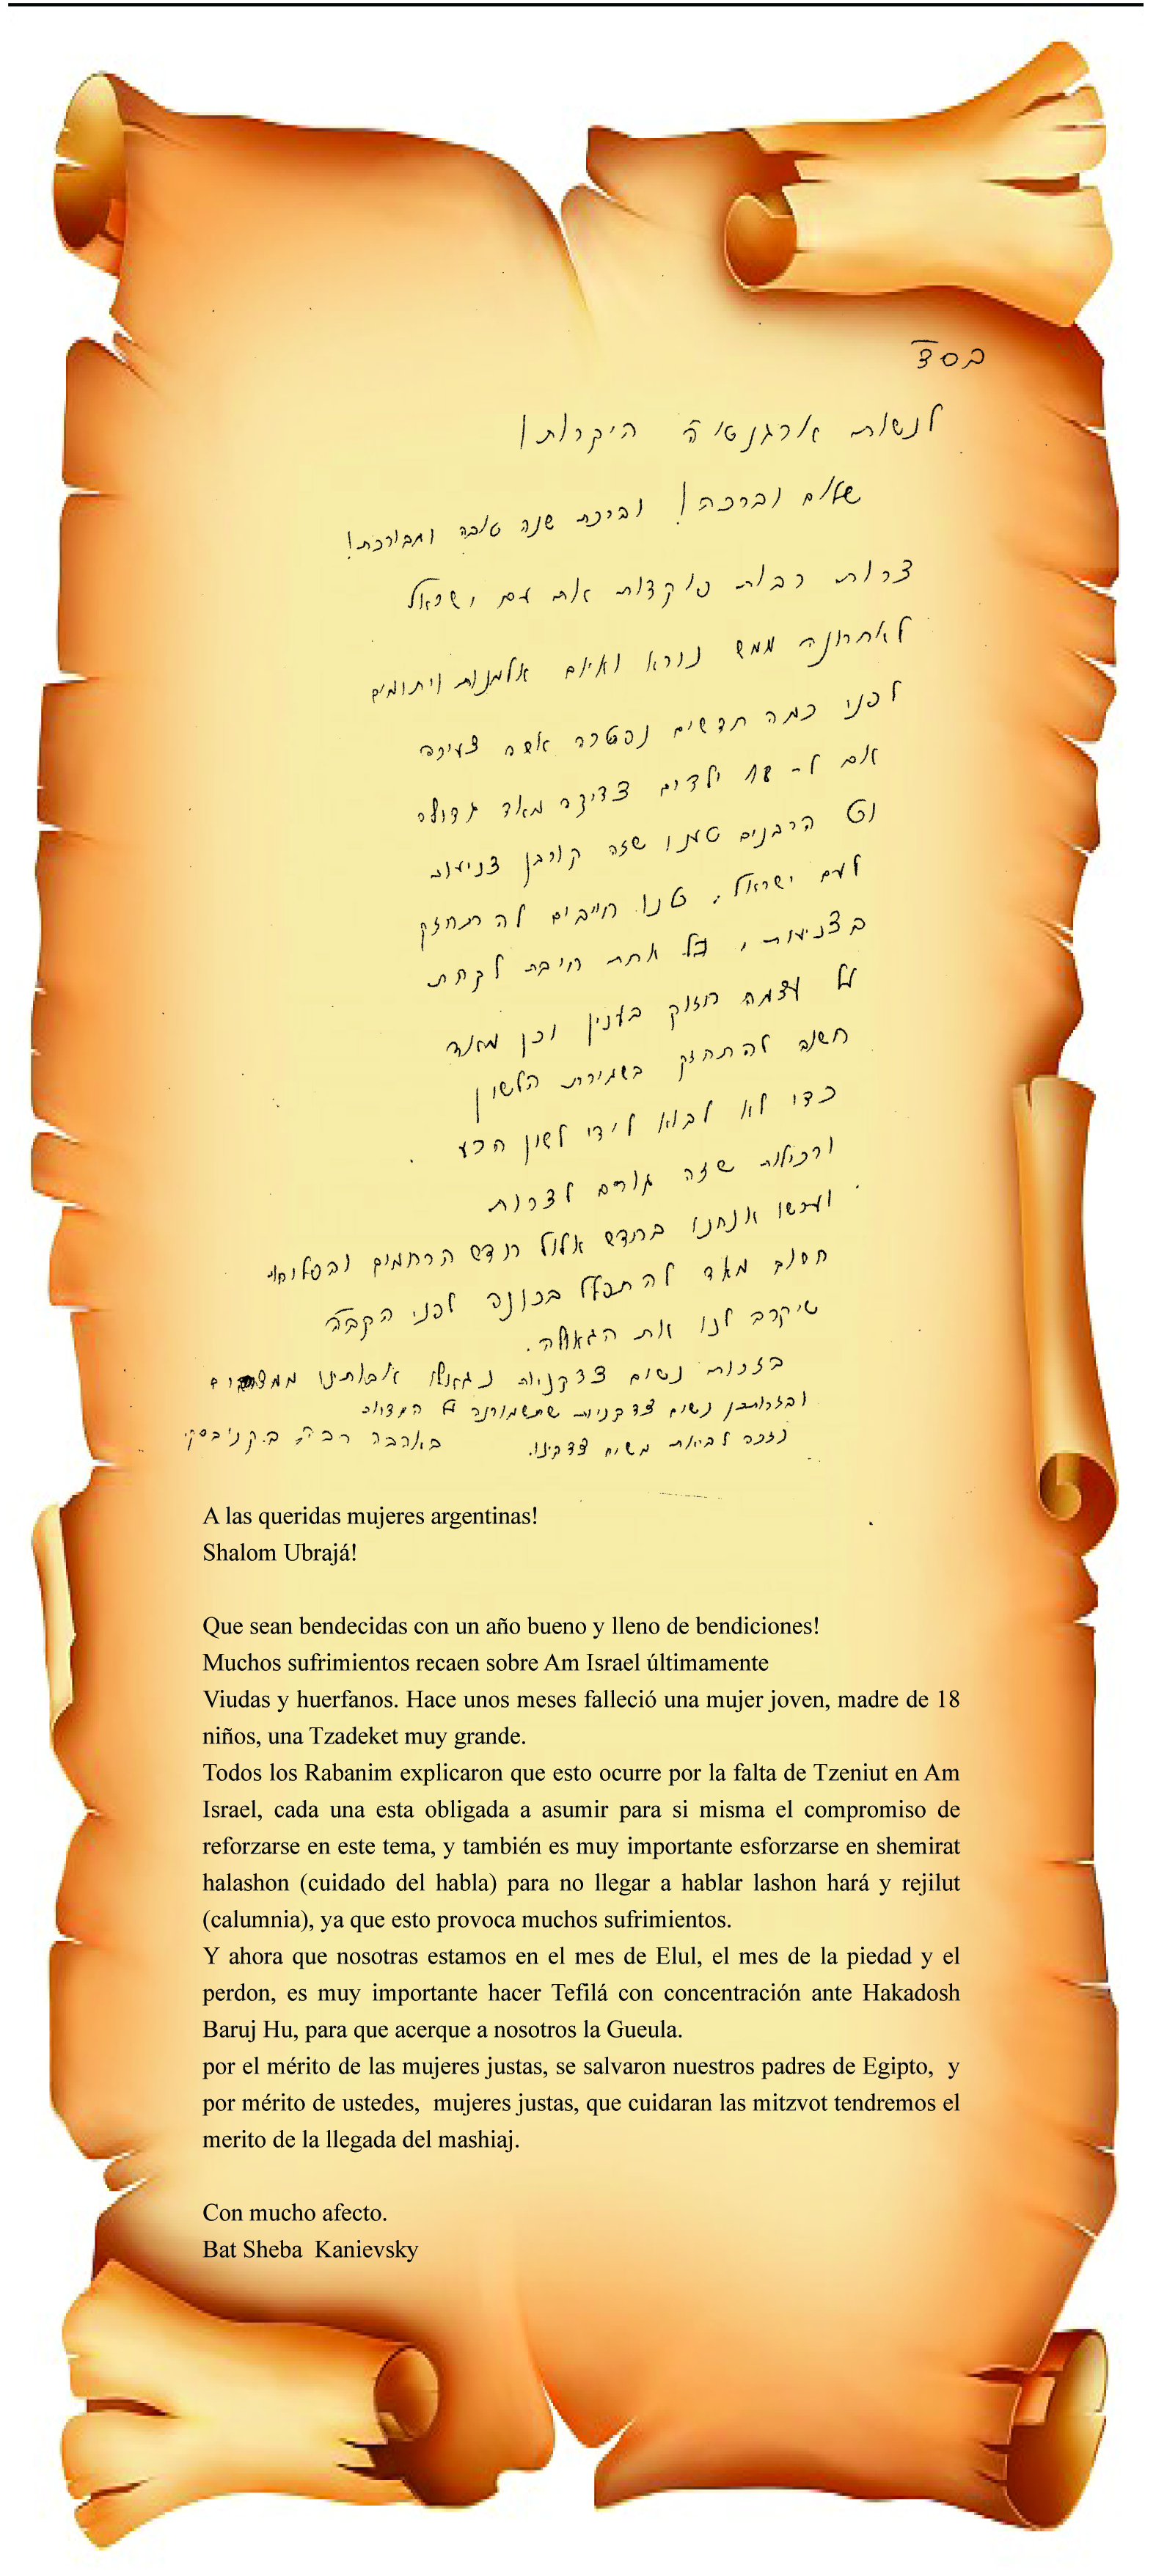 בסד
לנשות ארגנטינה היקרות!
שלום וברכה! וברכת שנה טובה ומבורכת!
צרות רבות פוקדות את עם ישראל
לאחרונה ממש נורא ואיום אלמנות ויתומים
לפני כמה חדשים נפטרה אשה צעירה
אם ל- 18 ילדים צדיקה מאד גדולה
הרבנים טענו שזה קורבן צניעות
לעם ישראל. חייבים להתחזק
בצניעות, כל אחת חיבת לקחת
על עצמה חזוק בענין וכן מאוד
חשוב להתחזק בשמירת הלשון
כדי לא לבוא לידי לשון הרע
ורכילות שזה גורם לצרות
ועכשו אנחנו בחדש אלול חדש הרחמים והסליחות
חשוב מאד להתפלל בכונה לפני הקבה
שיקרב לנו את הגאולה.
בזכות נשים צדקניות נגאלו אבותינו ממצרים
ובזכותכן נשים צדקניות שתשמורנה על המצוות
נזכה לביאת משיח צדקינו. באהבה רבה, ב.קניבסקי.
A las queridas mujeres argentinas!
Shalom Ubrajá!
Que sean bendecidas con un año bueno y lleno de bendiciones!
Muchos sufrimientos recaen sobre Am Israel últimamente
Viudas y huerfanos. Hace unos meses falleció una mujer joven, madre de 18
niños, una Tzadeket muy grande.
Todos los Rabanim explicaron que esto ocurre por la falta de Tzeniut en Am
Israel, cada una esta obligada a asumir para si misma el compromiso de
reforzarse en este tema, y también es muy importante esforzarse en shemirat
halashon (cuidado del habla) para no llegar a hablar lashon hará y rejilut
(calumnia), ya que esto provoca muchos sufrimientos.
Y ahora que nosotras estamos en el mes de Elul, el mes de la piedad y el
perdon, es muy importante hacer Tefilá con concentración ante Hakadosh
Baruj Hu, para que acerque a nosotros la Gueula.
por el mérito de las mujeres justas, se salvaron nuestros padres de Egipto, y
por mérito de ustedes, mujeres justas, que cuidaran las mitzvot tendremos el
merito de la llegada del mashiaj.
Con mucho afecto.
Bat Sheba Kanievsky